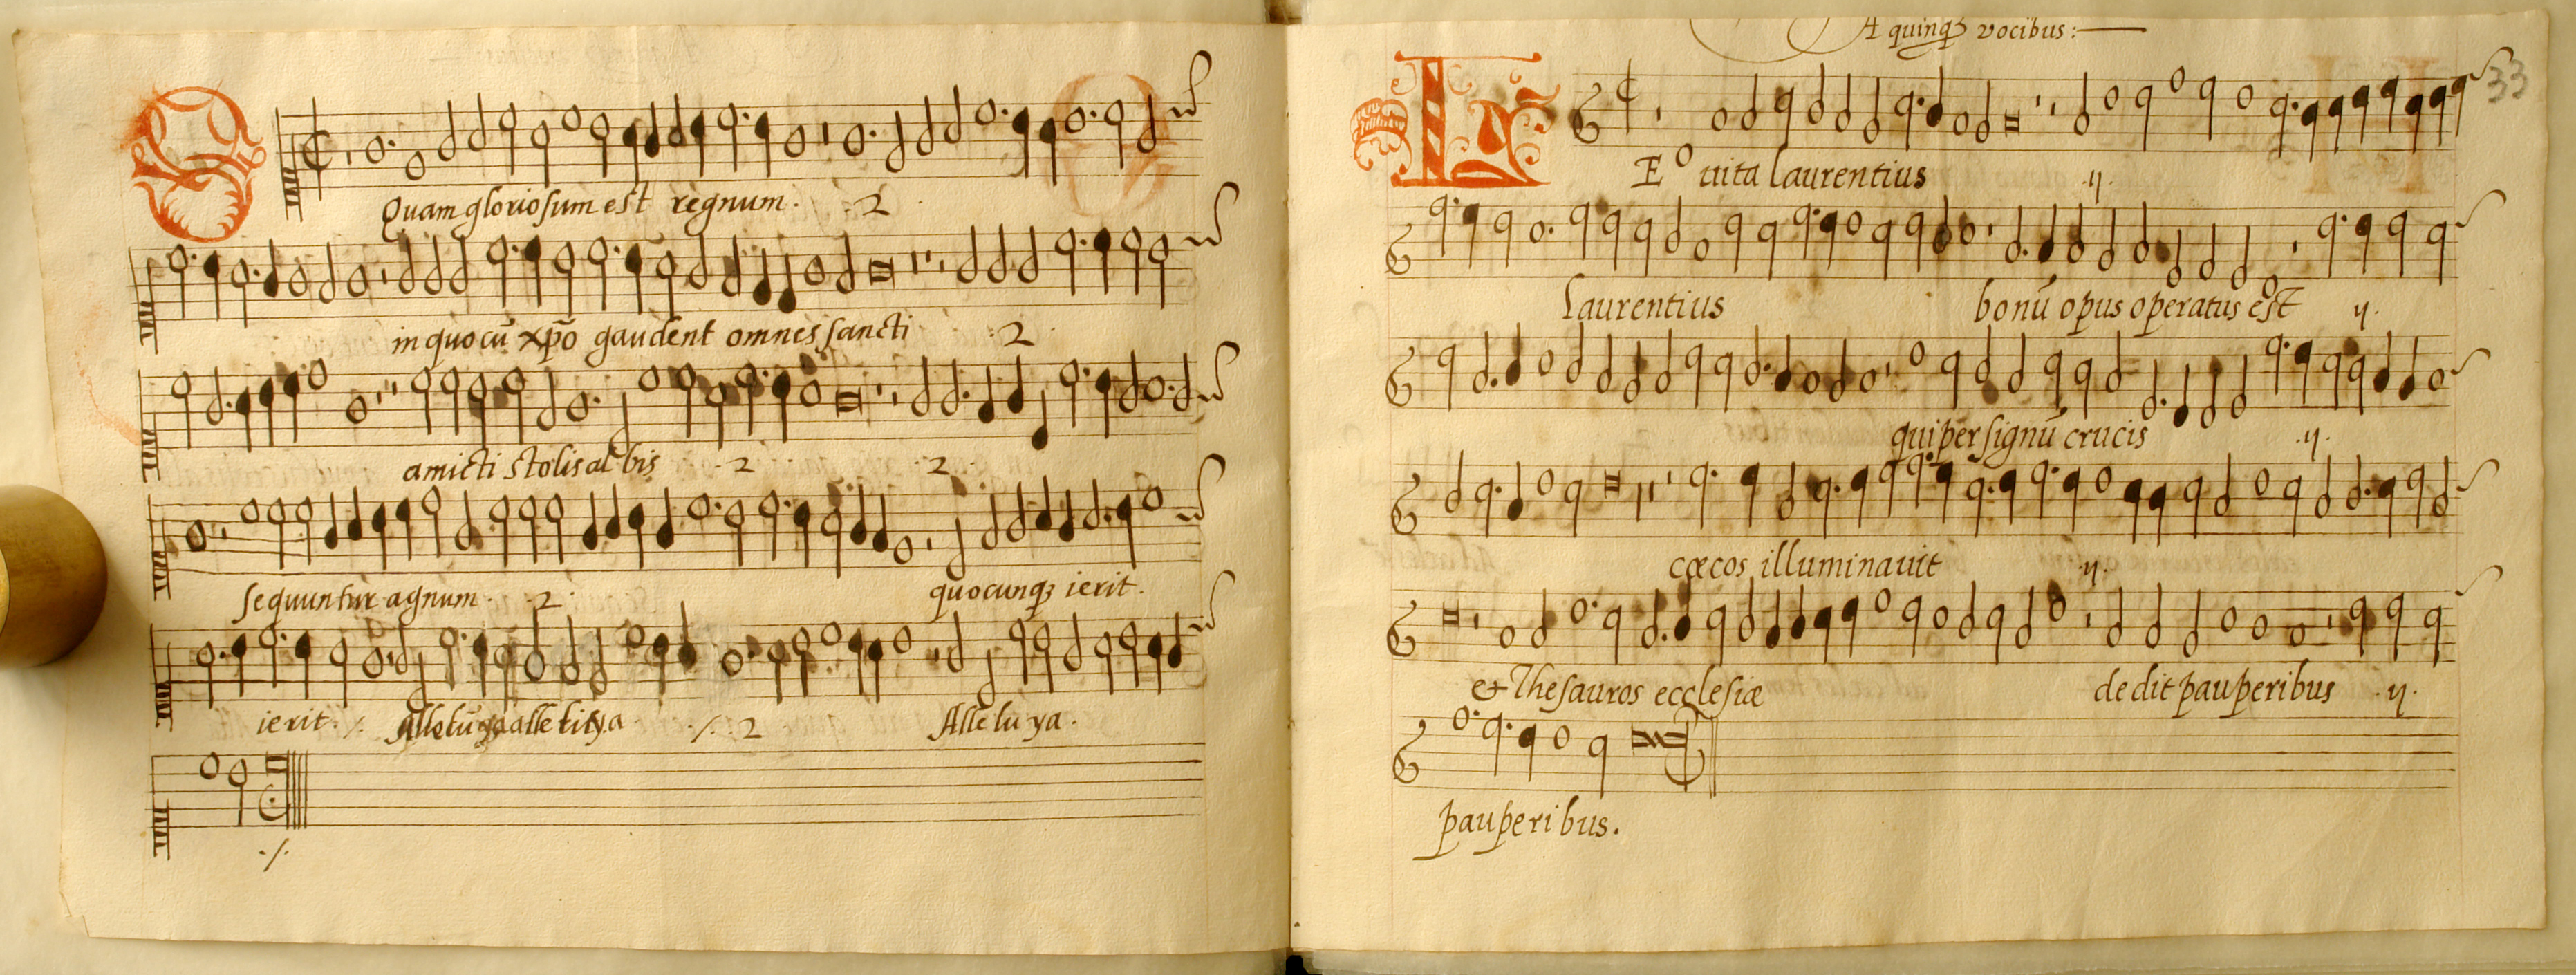 O
Quam gloriosum est regnum. ./. 2
in quo cū xp̄o gaudent omnes sancti .2.
amicti stolis al bis .2. .2.
sequuntur agnum. .2. quocunqꝫ ierit.
ierit. ./. ./. 2 Alle lu ya.
./.
A quinqꝫ vocibus:
33
L
Eo uita laurentius .ij.
laurentius bonū opus operatus est ij.
qui per signū crucis .ij.
cœcos illuminauit .ij.
et Thesauros ecclesiæ dedit pauperibus .ij.
pauperi bus.